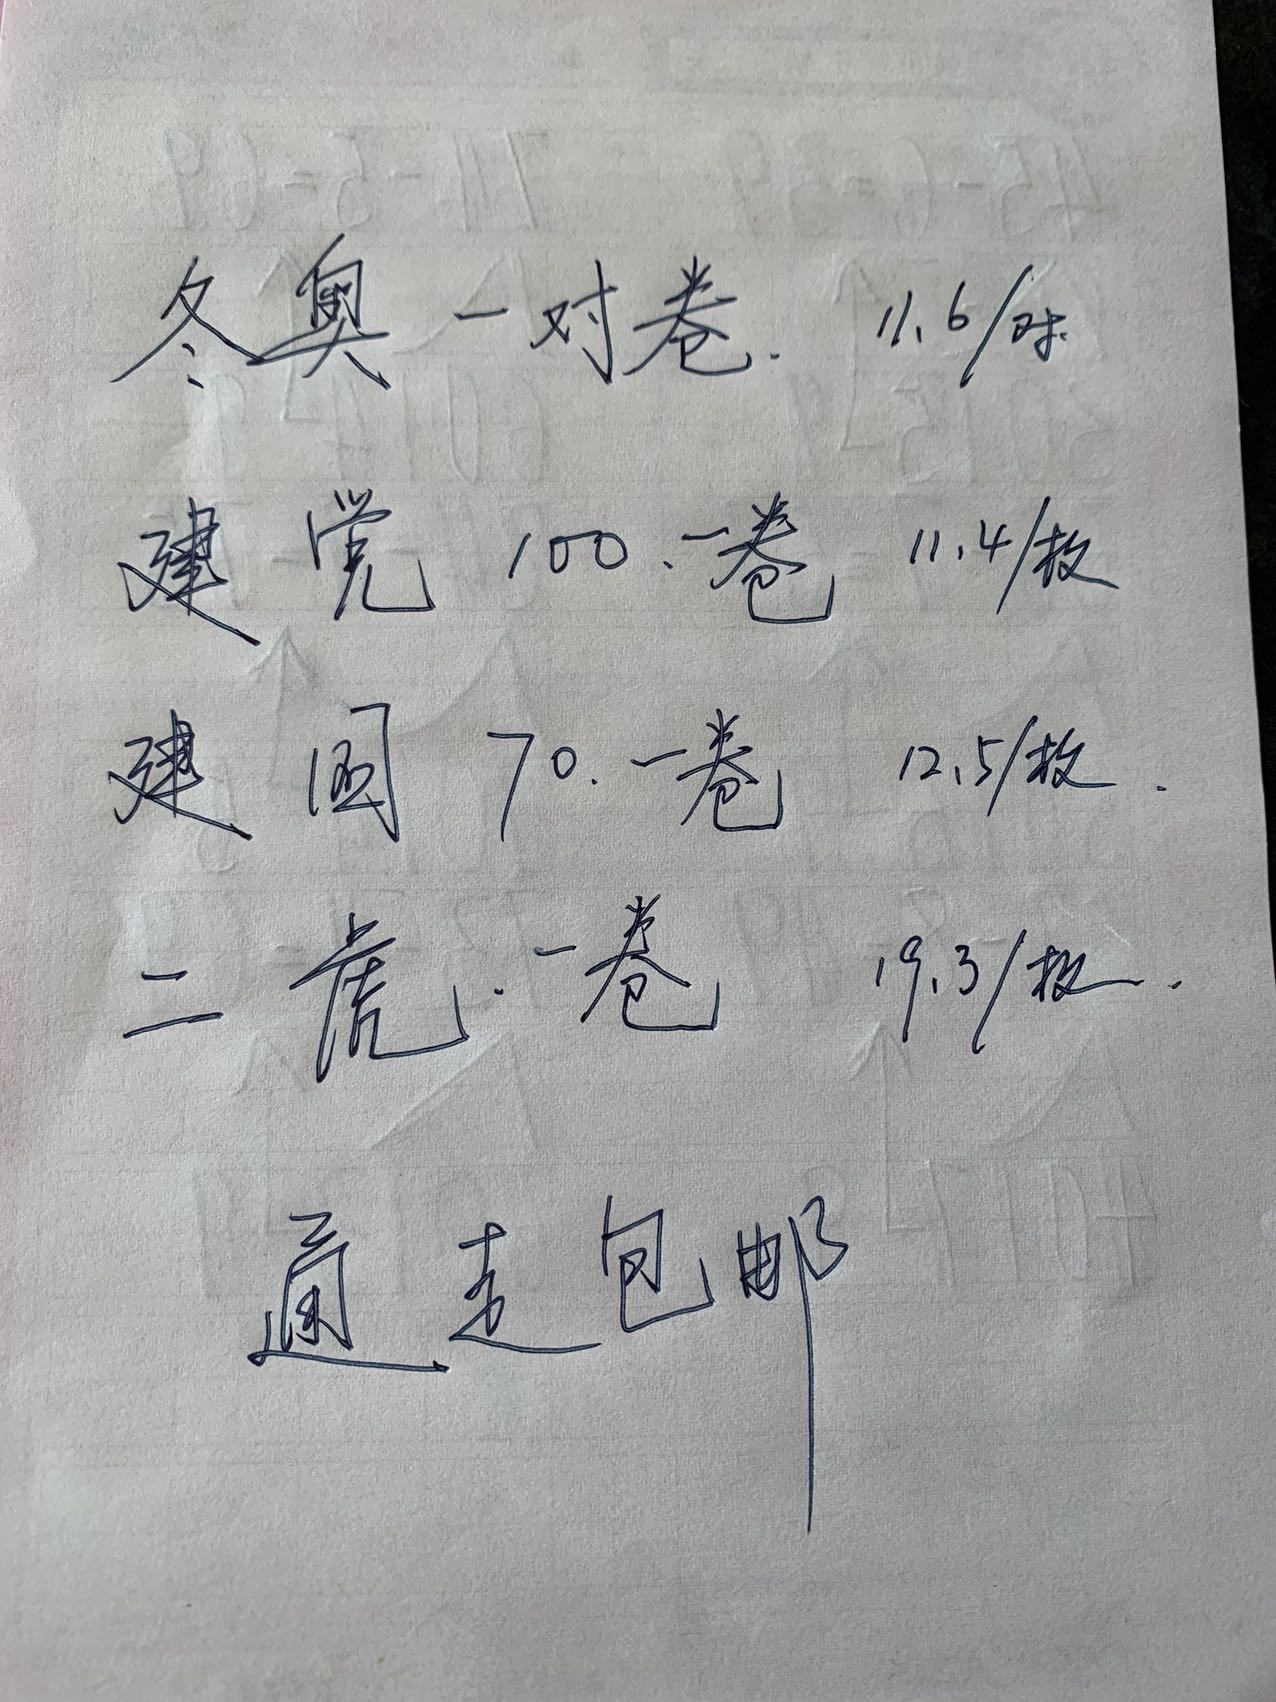 冬奥一对卷. 11.6/对.
建党100.一卷 11.4/枚
建国70.一卷 12.5/枚.
二虎.一卷 19.3/枚.
通走包邮